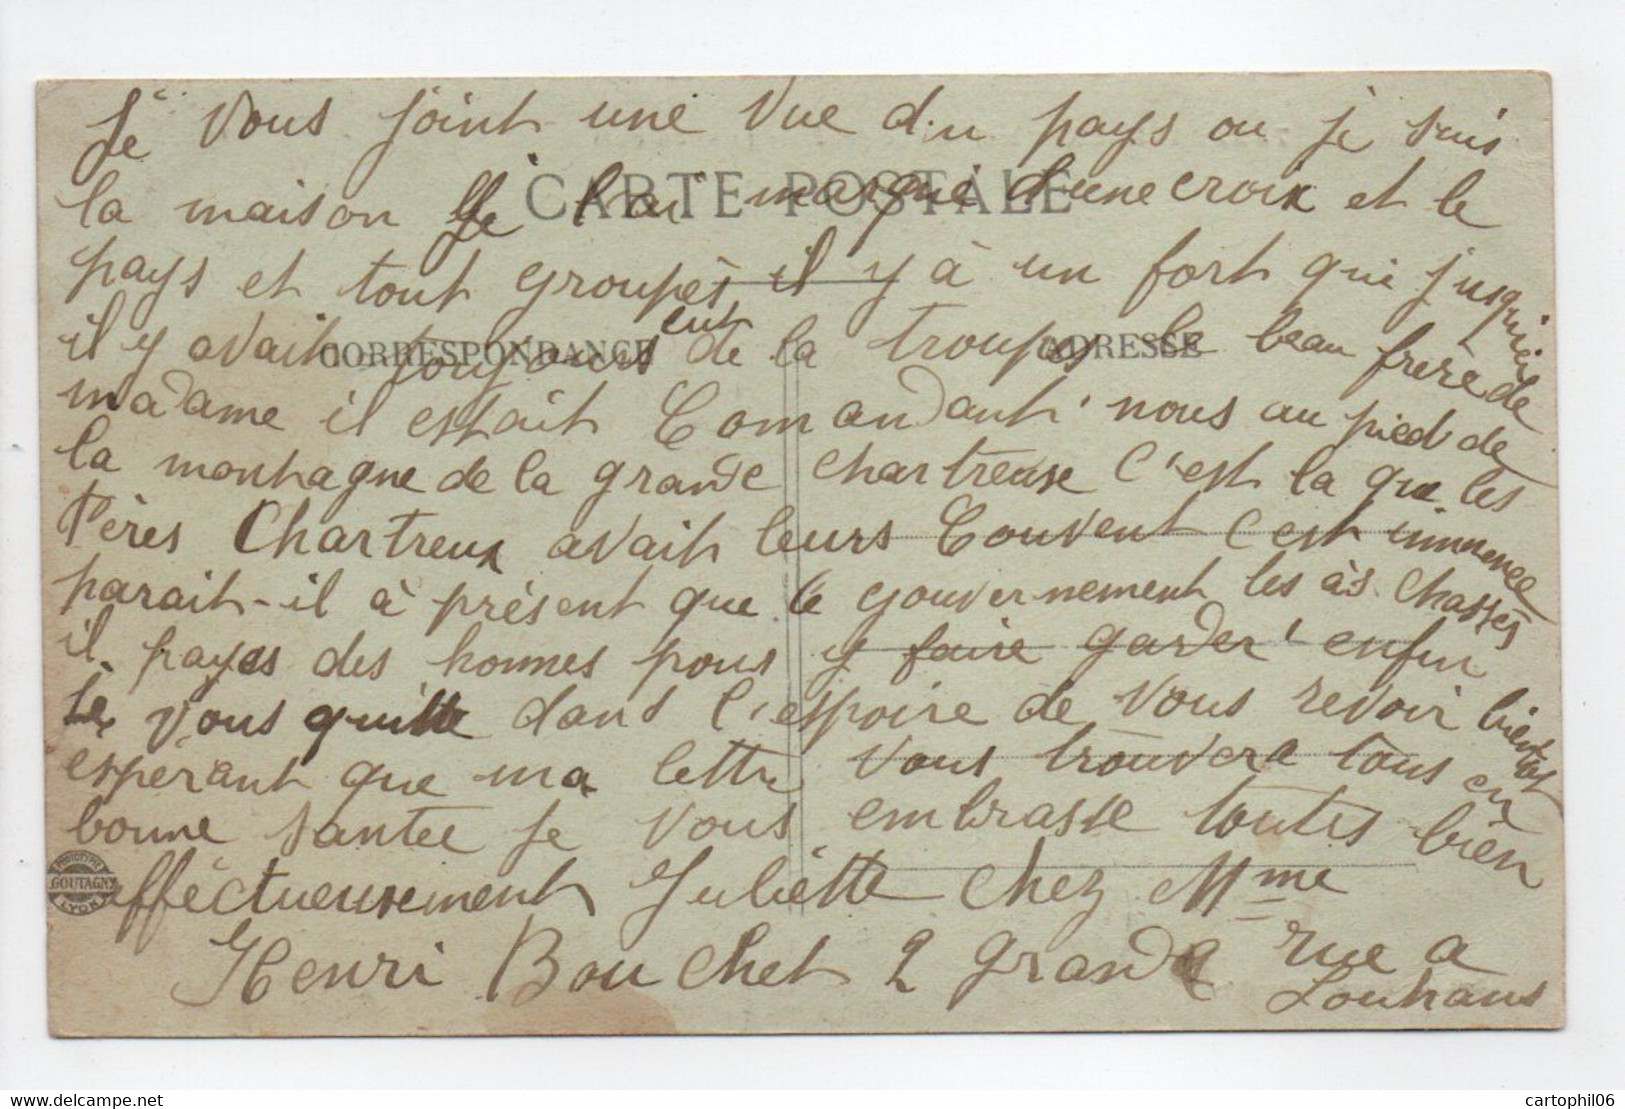 Je vous joint une vue du pays ou je suis
CARTE POSTALE
la maison Je l'ai marqué d'une croix et le
pays et tout groupés il y à un fort qui jusqu'ici
CORRESPONDANCE
ADRESSE
il y avait toujours eut de la troupes le beau frère de
madame il estait Comandant nous au pied de
la montagne de la grande chartreuse C'est la que les
Pères Chartreux avait leurs Couvent C'est immence
parait-il à présent que le gouvernement les às chassés
il payes des hommes pous y faire garder enfin
Je vous quitte dans l'espoire de vous revoir bientot
esperant que ma lettre vous trouvera tous en
bonne santée je vous embrasse toutes bien
PHOTOTYPIE
GOUTAGNY
LYON
afféctueusement Juliette chez Mme
Henri Bouchet 2 grande rue a
Louhans
cartophil06